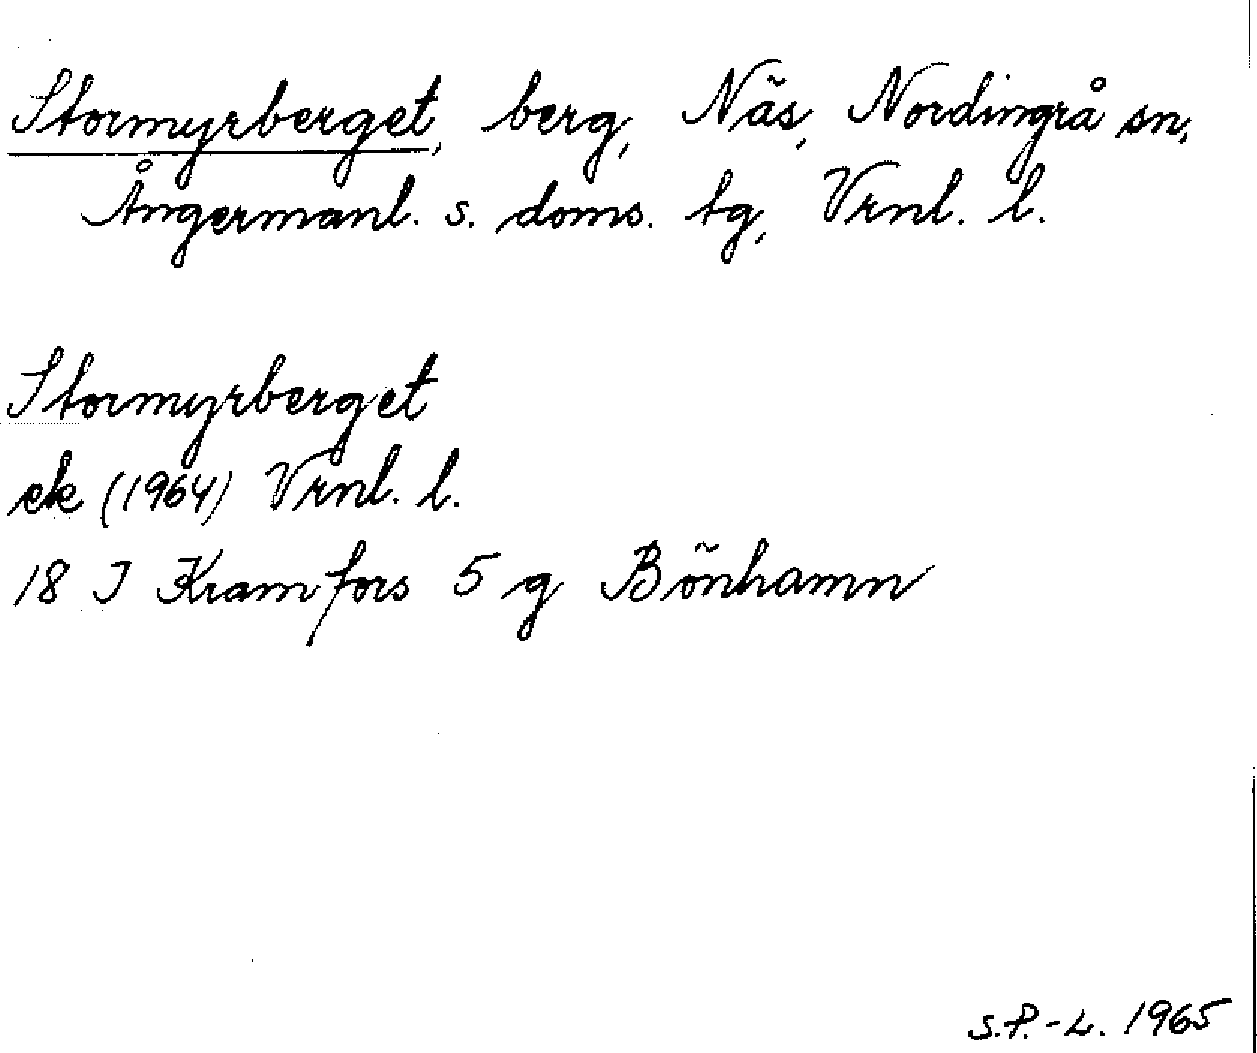 Stormyrberget, berg, Näs, Nordingrå sn,
Ångermanl. s. doms. tg, Vrnl. l.
Stormyrberget
ek (1964) Vrnl. l.
18 I Kramfors 5 g Bönhamn
S.P.-L. 1965